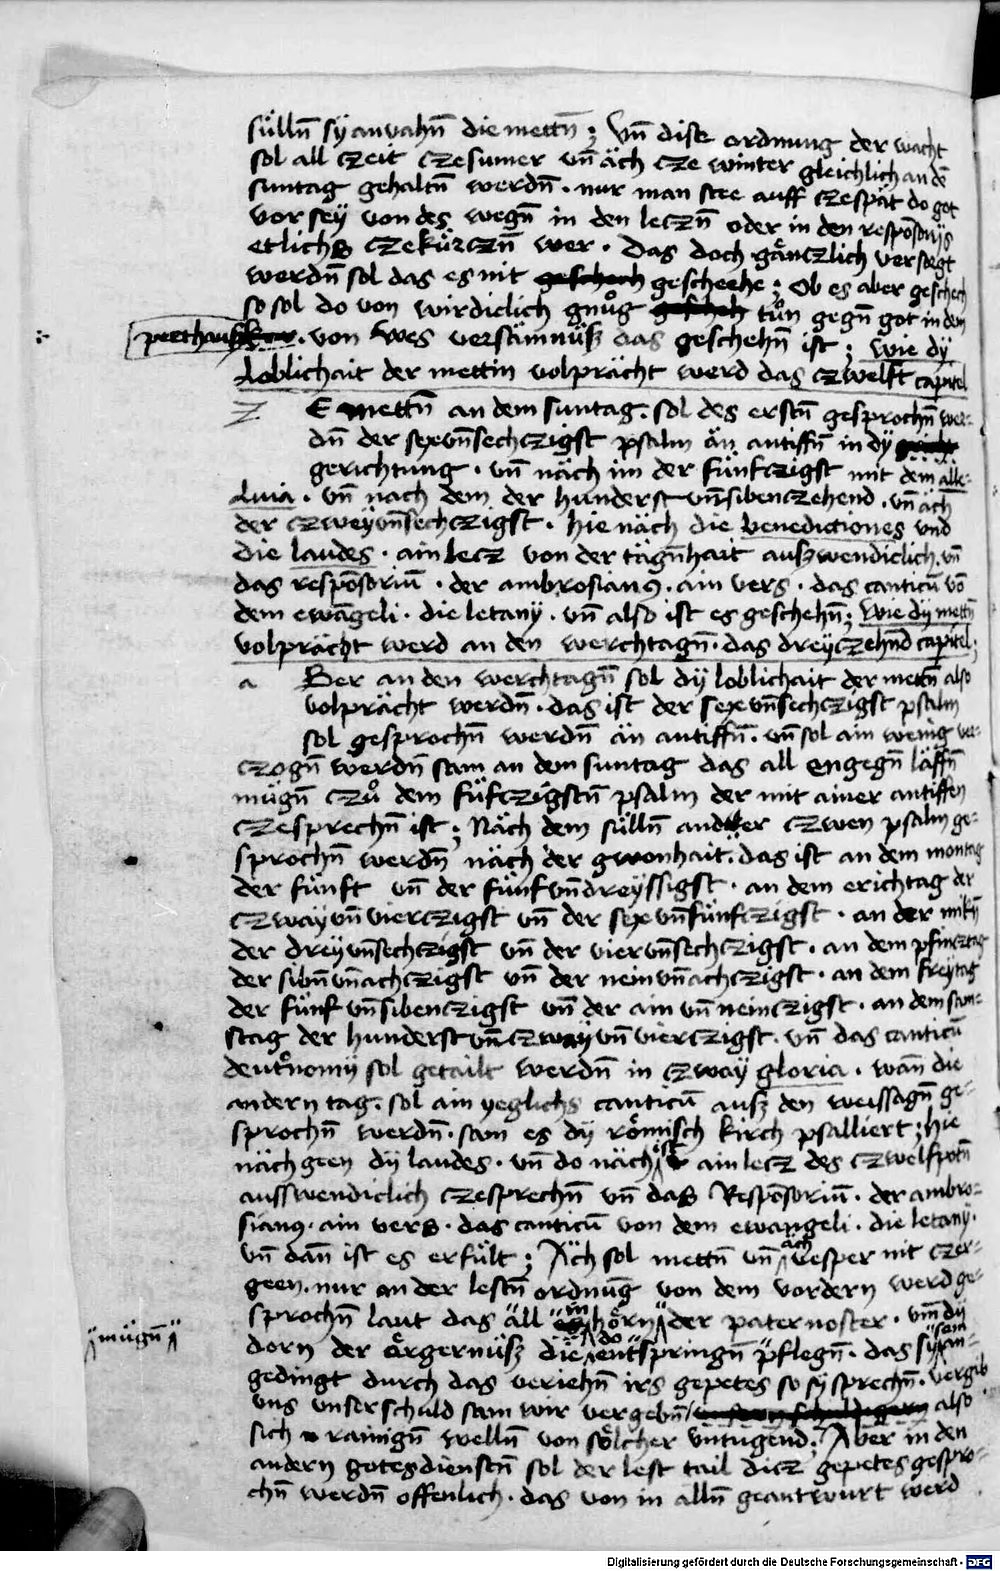 süllñ sy anvahñ die mettñ ; vñ dise ordnung der wacht
sol all czeit cze sumer vñ äch cze winter gleichlich an dē
suntag gehaltñ werdñ . nur man stee auff cze spät do got
vor sey von des wegñ in den leczñ oder in den respōsorijs
etlichs cze kürczñ wer . das doch gänczlich versorgt
werdñ sol das es nit geschech gescheche ; Ob es aber geschech
so sol do von wirdiclich gnůg tůn gegñ got in dem
petthaus . von wes versämnüsz das geschehñ ist ; wie dy
loblichait der mettin volprächt werd das czwelft capitel
Ze mettñ an dem suntag . sol des erstñ gesprochñ wer-
dñ der sexvñsechczigst psalm än antiffñ in dy
gerichtung . vñ näch im der fünfczigst mit dem alle-
luia . vñ nach dem der hunderst vñsibenczehend . vñ äch
der czweyvñsechczigst . hie näch die benedictiones vnd
die laudes . ain lecz von der tägñhait auszwendiclich . vñ
das respōsoriū . der ambrosianus . ain vers . das canticū vō
dem ewägeli . die letany . vñ also ist es geschehñ ; wie dy mettñ
volprächt werd an den werchtagñ . das dreyczehñd capitel ;
a Ber an den werchtagñ sol dy loblichait der mettñ also
volprächt werdñ . das ist der sexvñsechczigst psalm
sol gesprochñ werdñ än antiffñ . vñ sol ain wenig ver-
czogñ werdñ sam an dem suntag das all engegñ läffñ
mügñ czů dem füfczigstñ psalm der mit ainer antiffen
cze sprechñ ist ; Näch dem süllñ ander czwen psalm ge-
sprochñ werdñ näch der gwonhait . das ist an dem montag
der fünft vñ der fünfvñdreyssigst . an dem erichtag der
czwayvñvierczigst vñ der sexvñfünfczigst . an der mitñ
der dreyvñsechczigst vñ der viervñsechczigst . an dem pfincztag
der sibñvñachczigst vñ der neinvñachczigst . an dem freytag
der fünfvñsibenczigst vñ der ainvñneinczigst . an dem sam-
stag der hunderst vñ czwayvñvierczigst . vñ das canticū
deutronomy sol getailt werdñ in czway gloria . wañ die
andern tag . sol ain yeglichs canticū ausz den weissagñ ge-
sprochñ werdñ . sam es dy römisch kirch psalliert ; hie
näch geen dy laudes . vñ do näch ain lecz des czwelfpotñ
ausswendiclich cze sprechñ vñ das Respōsoriū . der ambro-
sianus . ain vers . das canticū von dem ewangeli . die letany .
vñ dañ ist es erfült ; Äch sol mettñ vñ äch vesper nit czer-
geen . nur an der lestñ ordnūg von dem vordern werd ge-
sprochñ laut das äll hörn der pater noster . vm dy
mügñ
dorn der ärgernüsz die do entspringñ pflegñ . das sy sam an-
gedingt durch das veriehñ irs gepetes so sy sprechñ . vergib
vns vnser schuld sam wir vergebñ also
sich rainigñ wellñ von sölcher vntugend ; Aber in den
andern gotesdienstñ sol der lest tail dicz gepetes gespro-
chñ werdñ offenlich . das von in allñ geantwurt werd
Digitalisierung gefördert durch die Deutsche Forschungsgemeinschaft - DFG